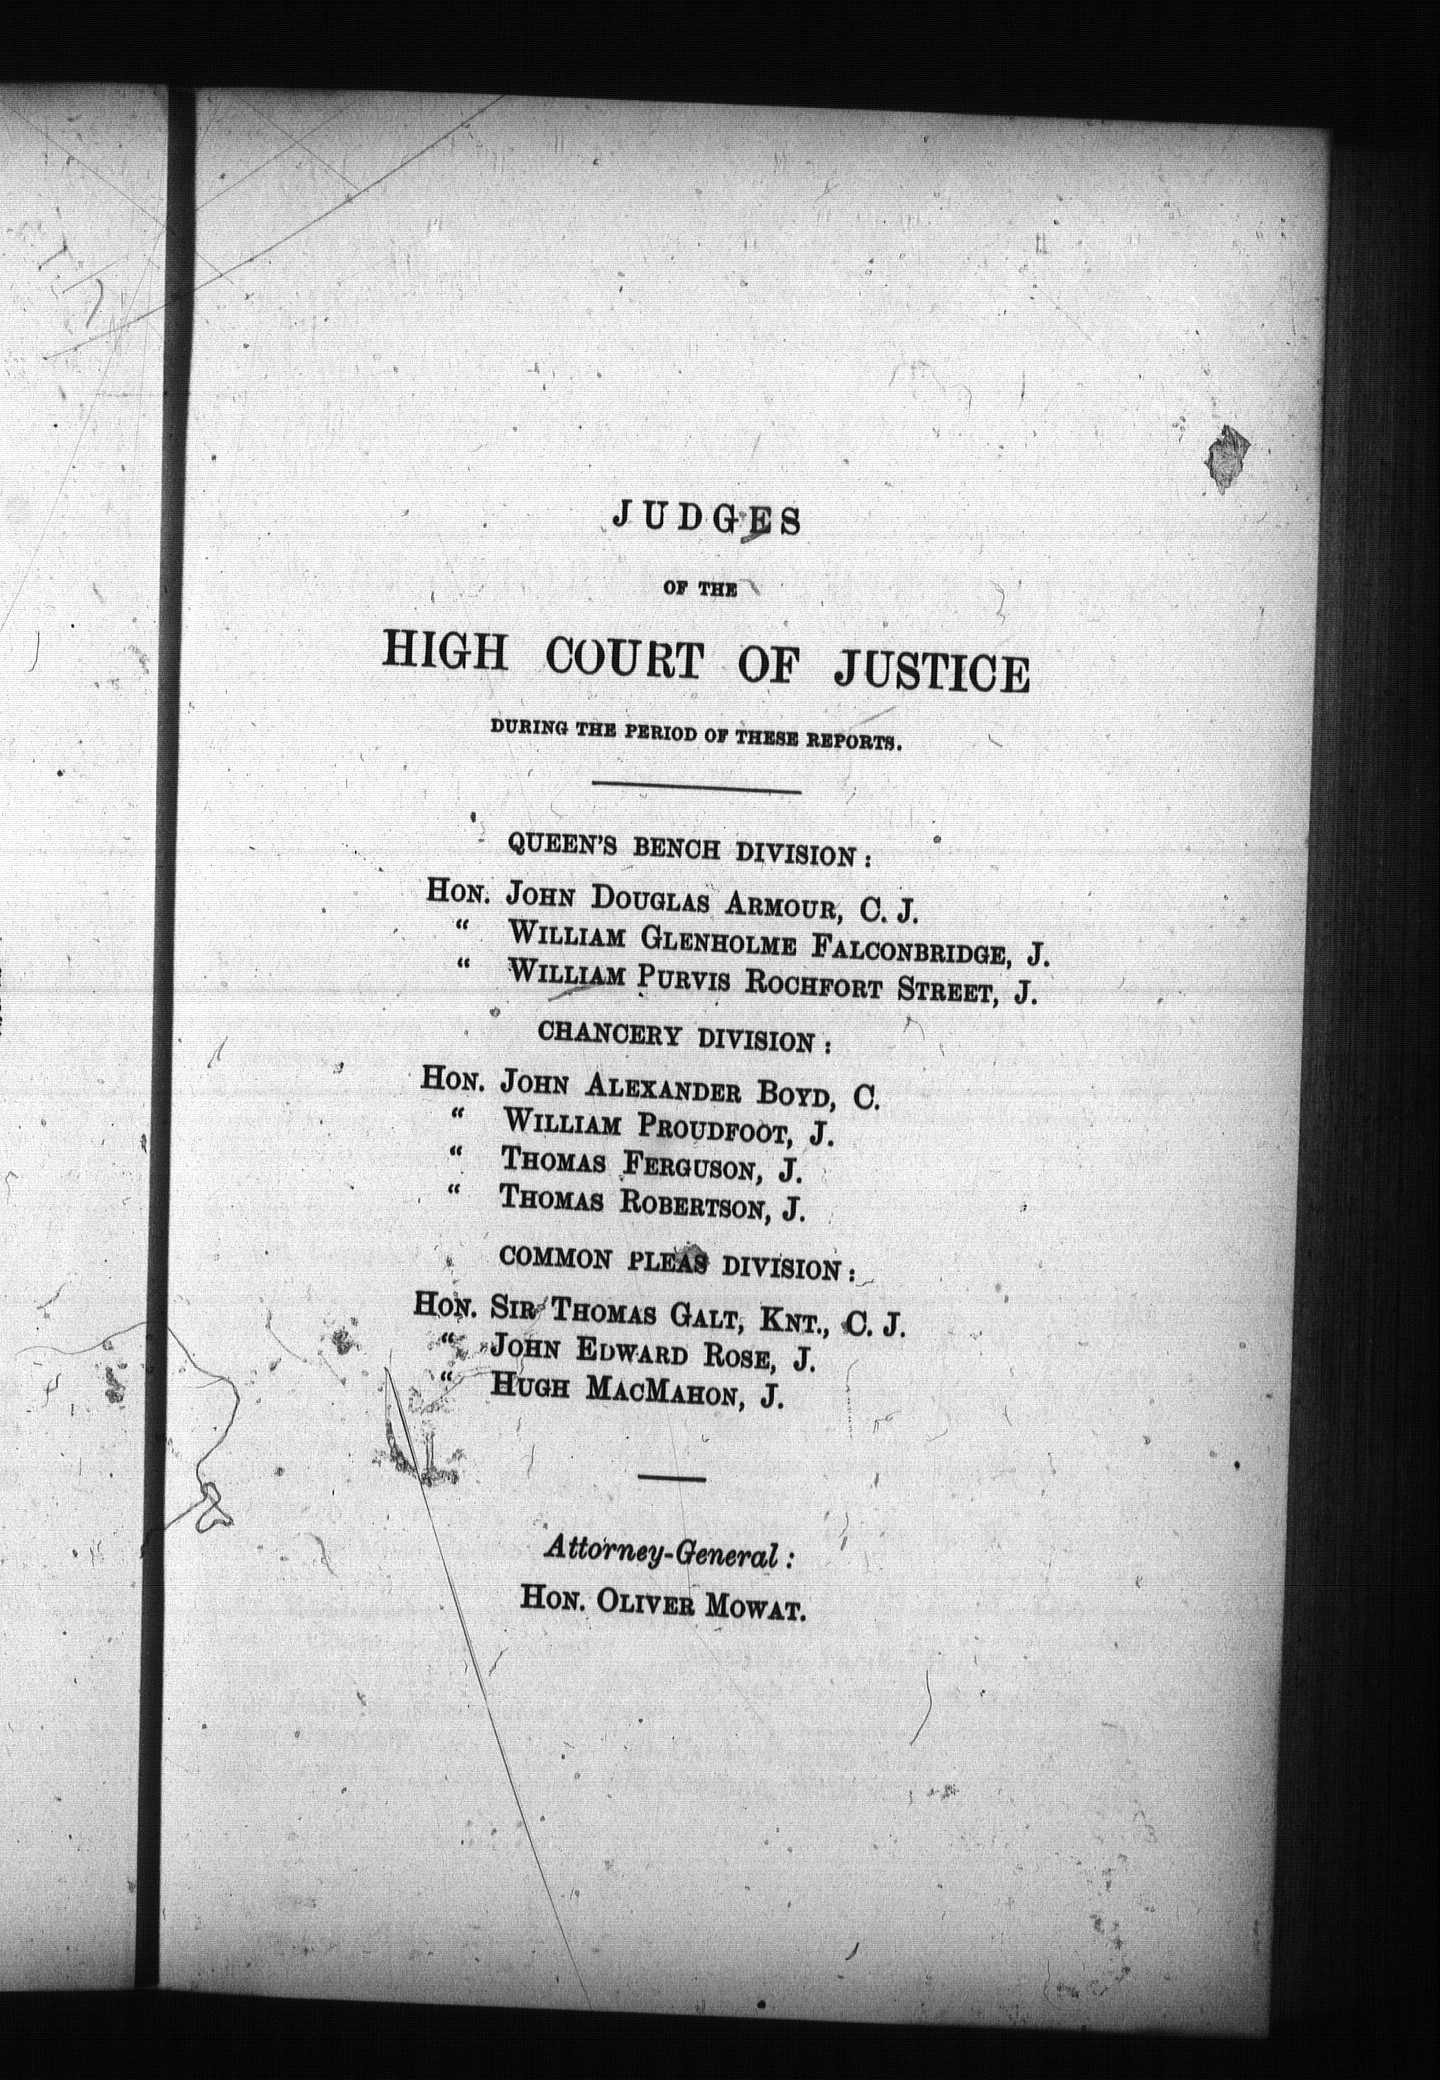 JUDGES
OF THE
HIGH COURT OF JUSTICE
DURING THE PERIOD OF THESE REPORTS.
QUEEN'S BENCH DIVISION:
HON. JOHN DOUGLAS ARMOUR, C. J.
“ WILLIAM GLENHOLME FALCONBRIDGE, J.
“ WILLIAM PURVIS ROCHFORT STREET, J.
CHANCERY DIVISION:
HON. JOHN ALEXANDER BOYD, C.
“ WILLIAM PROUDFOOT, J.
“ THOMAS FERGUSON, J.
“ THOMAS ROBERTSON, J.
COMMON PLEAS DIVISION:
HON. SIR THOMAS GALT, KNT., C. J.
“ JOHN EDWARD ROSE, J.
“ HUGH MACMAHON, J.
Attorney-General:
HON. OLIVER MOWAT.